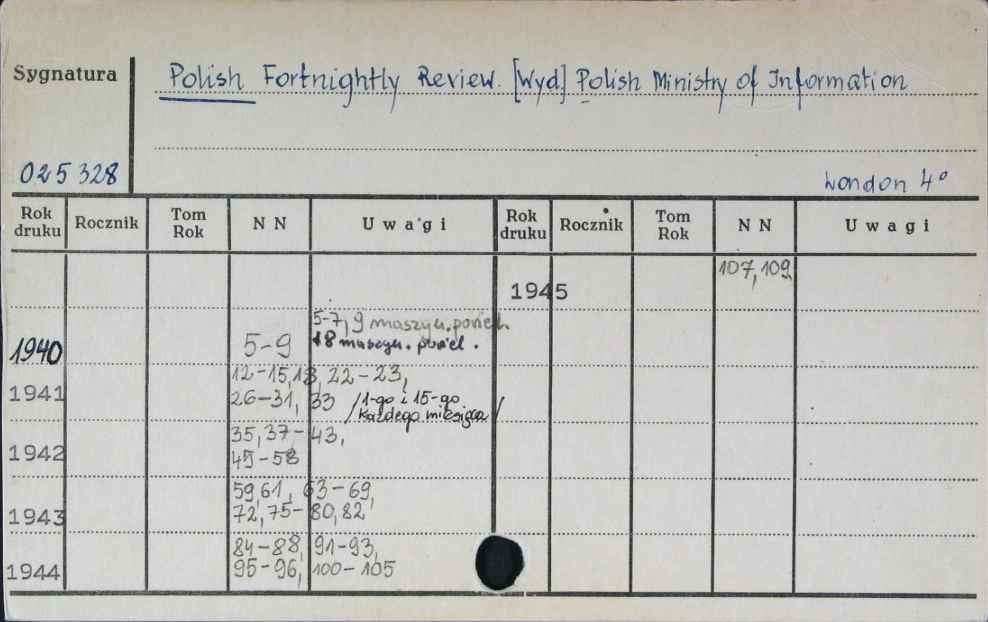 Sygnatura
Polish Fortnightly Review. [Wyd] Polish Ministry of Information
025 328
London 4°
Rok druku Rocznik Tom Rok NN Uwagi Rok druku Rocznik Tom Rok NN Uwagi
107, 109
1945
5-7, 9 maszyn. powiel.
1940 5-9 8 maszyn. powiel.
12-15, 18, 22-23,
1941 26-31, 33 /1-go i 15-go
każdego miesiąca/
35, 37-43,
1942 45-58
59, 61, 63-69,
1943 72, 75-80, 82
84-88, 91-93,
1944 95-96, 100-105